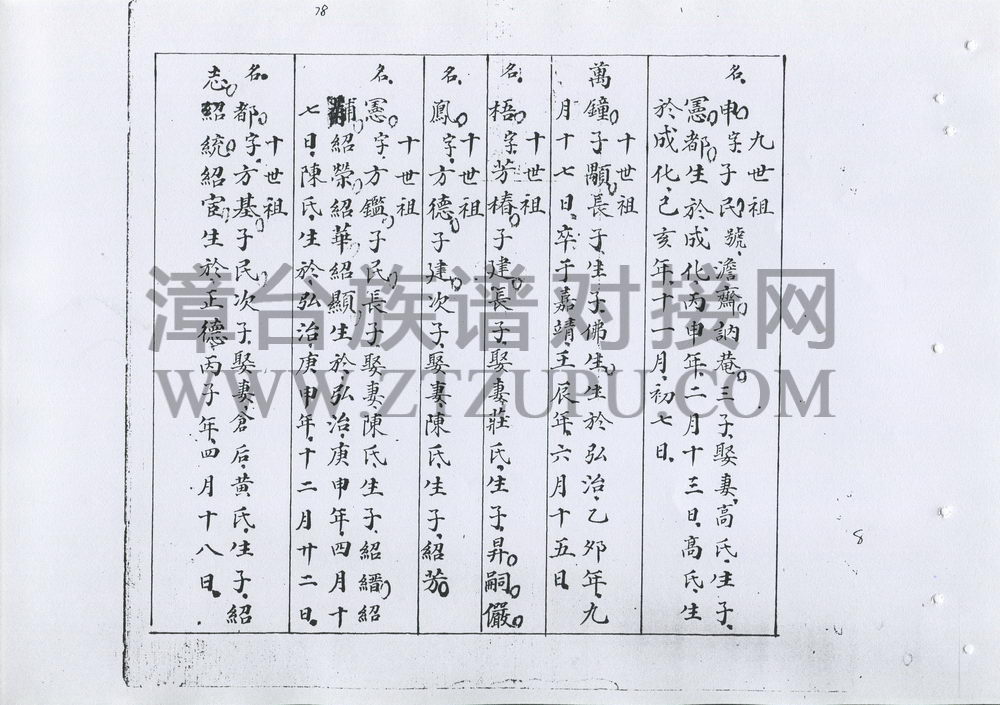 78
九世祖
名申字子民號澹齋訥菴三子娶妻高氏生子
憲都生於成化丙申年二月十三日高氏生
於成化己亥年十一月初七日
十世祖
萬鐘子顯長子生子佛生生於弘治乙卯年九
月十七日卒于嘉靖壬辰年六月十五日
十世祖
名梧字芳椿子建長子娶妻莊氏生子昇嗣儼
十世祖
名鳳字方德子建次子娶妻陳氏生子紹芳
十世祖
名憲字方鑑子民長子娶妻陳氏生子紹縉紹
黼紹榮紹華紹顯生於弘治庚申年四月十
七日陳氏生於弘治庚申年十二月廿二日
十世祖
名都字方基子民次子娶妻倉后黃氏生子紹
志紹統紹宦生於正德丙子年四月十八日
8
漳台族谱对接网
WWW.ZTZUPU.COM